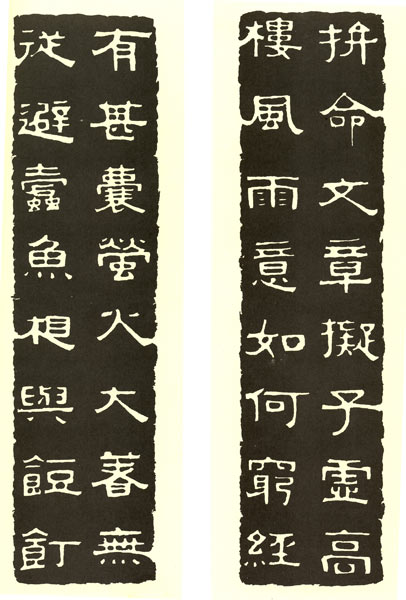 拚命文章擬子虛高
樓風雨意如何窮經
有甚囊螢火大著無
從避蠹魚相與餖飣